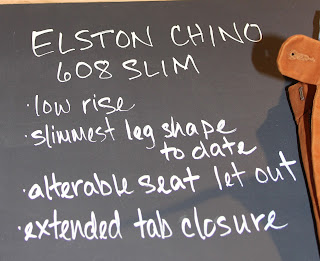 ELSTON CHINO
608 SLIM
·low rise
·slimmest leg shape
to date
·alterable seat let out
·extended tab closure